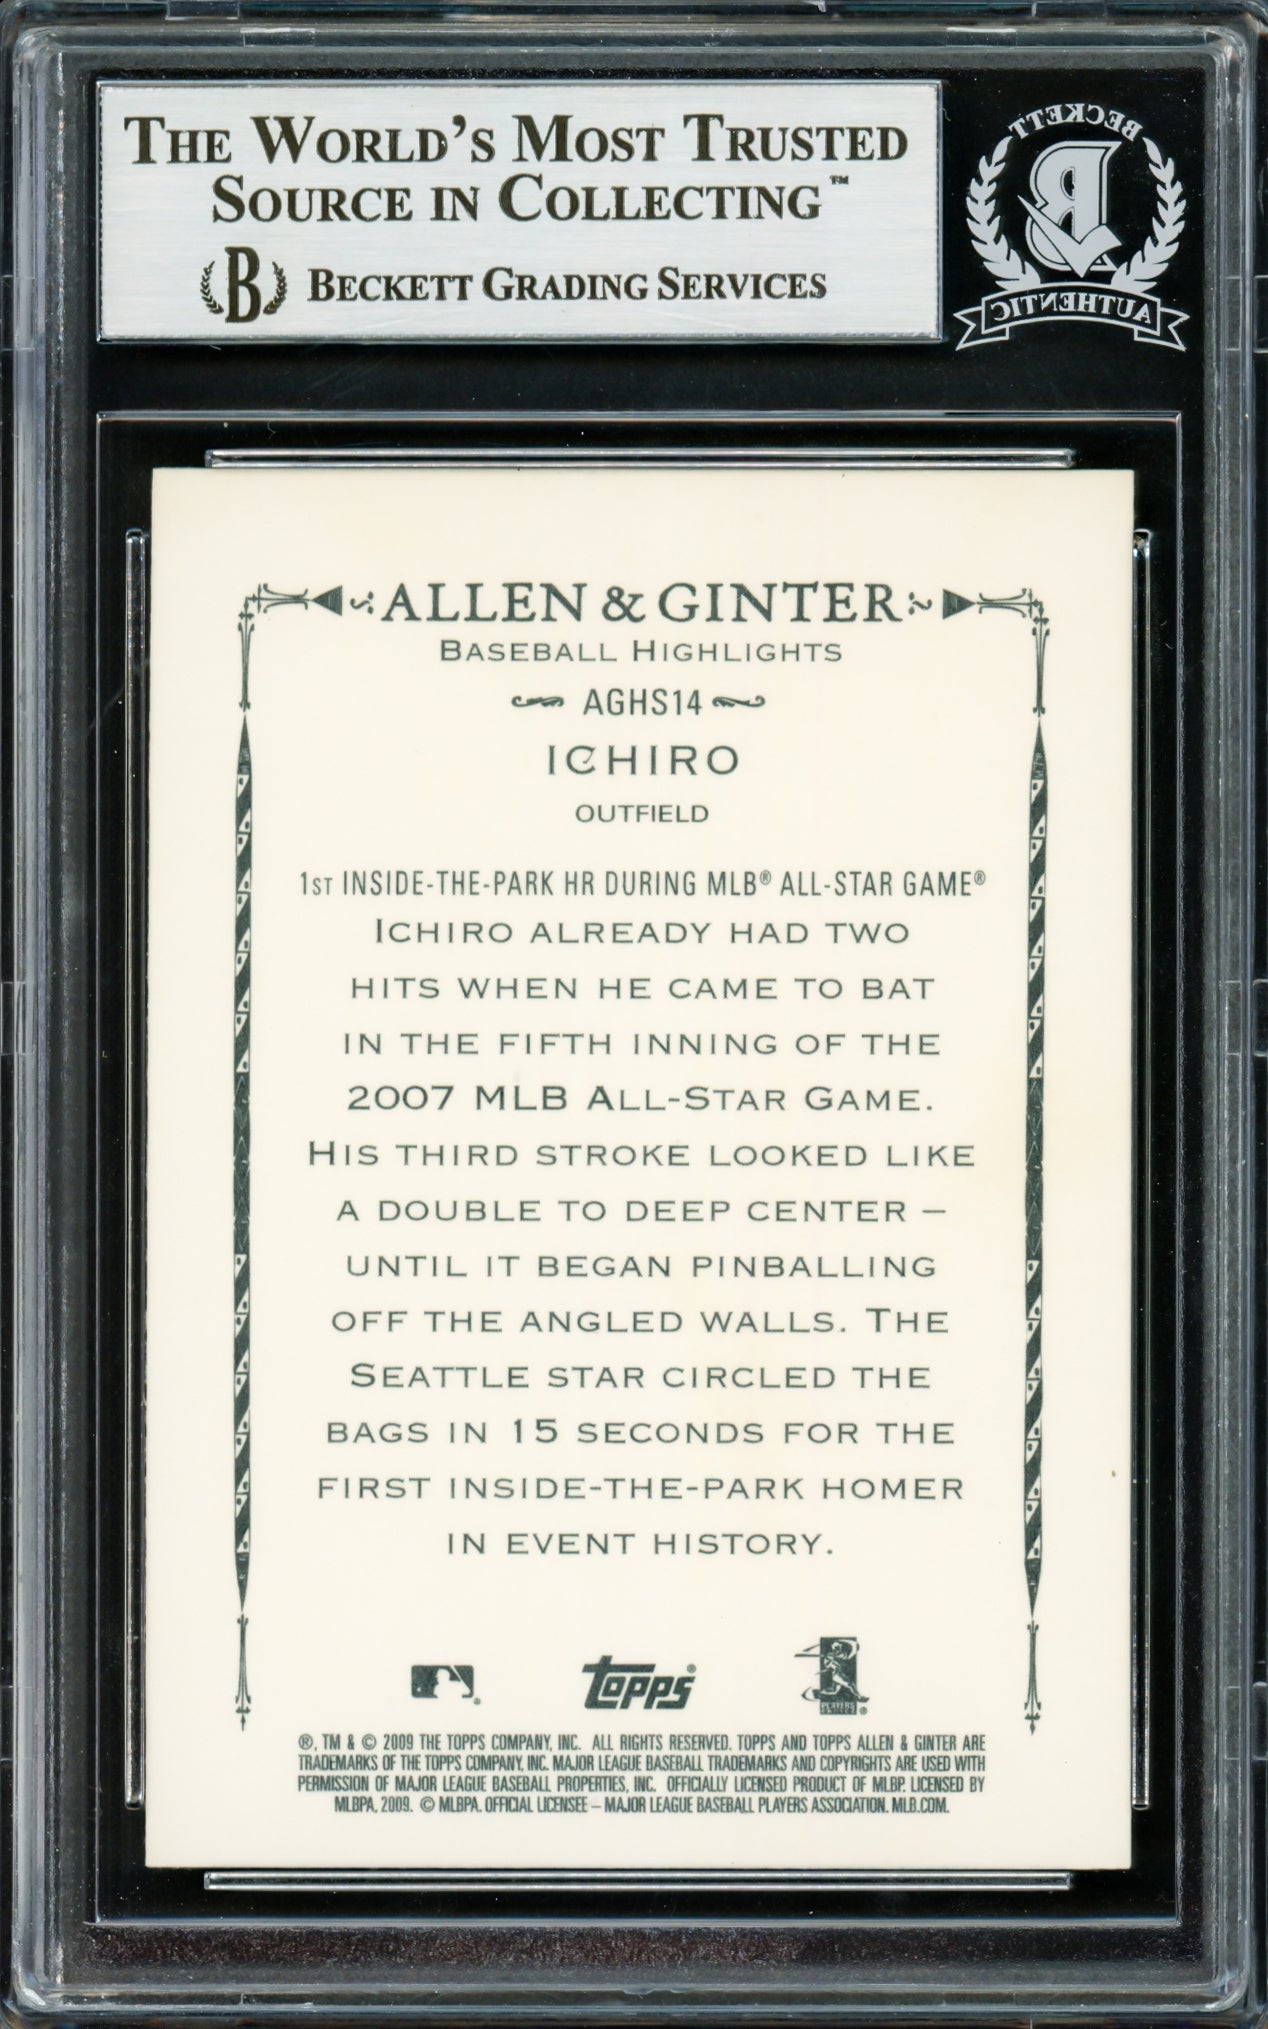 THE WORLD'S MOST TRUSTED
SOURCE IN COLLECTING™
B BECKETT GRADING SERVICES
BECKETT
B
AUTHENTIC
ALLEN & GINTER
BASEBALL HIGHLIGHTS
AGHS14
ICHIRO
OUTFIELD
1ST INSIDE-THE-PARK HR DURING MLB® ALL-STAR GAME®
ICHIRO ALREADY HAD TWO
HITS WHEN HE CAME TO BAT
IN THE FIFTH INNING OF THE
2007 MLB ALL-STAR GAME.
HIS THIRD STROKE LOOKED LIKE
A DOUBLE TO DEEP CENTER –
UNTIL IT BEGAN PINBALLING
OFF THE ANGLED WALLS. THE
SEATTLE STAR CIRCLED THE
BAGS IN 15 SECONDS FOR THE
FIRST INSIDE-THE-PARK HOMER
IN EVENT HISTORY.
topps®
PLAYERS
CHOICE
®, TM & © 2009 THE TOPPS COMPANY, INC. ALL RIGHTS RESERVED. TOPPS AND TOPPS ALLEN & GINTER ARE
TRADEMARKS OF THE TOPPS COMPANY, INC. MAJOR LEAGUE BASEBALL TRADEMARKS AND COPYRIGHTS ARE USED WITH
PERMISSION OF MAJOR LEAGUE BASEBALL PROPERTIES, INC. OFFICIALLY LICENSED PRODUCT OF MLBP. LICENSED BY
MLBPA, 2009. © MLBPA. OFFICIAL LICENSEE – MAJOR LEAGUE BASEBALL PLAYERS ASSOCIATION. MLB.COM.